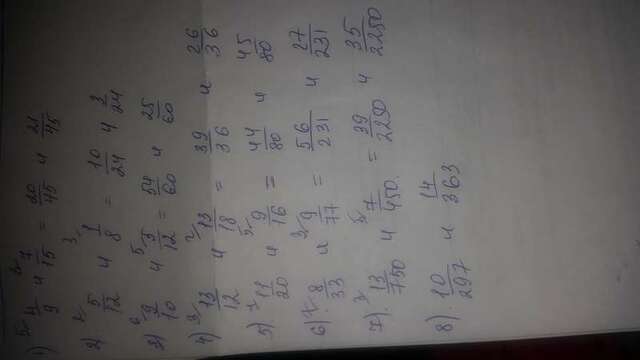 1) 5 4/9 и 3 7/15 = 20/45 и 21/45
2) 2 5/12 и 3 1/8 = 10/24 и 3/24
3) 6 9/10 и 5 5/12 = 54/60 и 25/60
4) 3 13/12 и 2 13/18 = 39/36 и 26/36
5) 11/20 и 5 9/16 = 44/80 и 45/80
6) 7 8/33 и 3 9/77 = 56/231 и 27/231
7) 3 13/750 и 5 7/450 = 39/2250 и 35/2250
8) 10/297 и 14/363